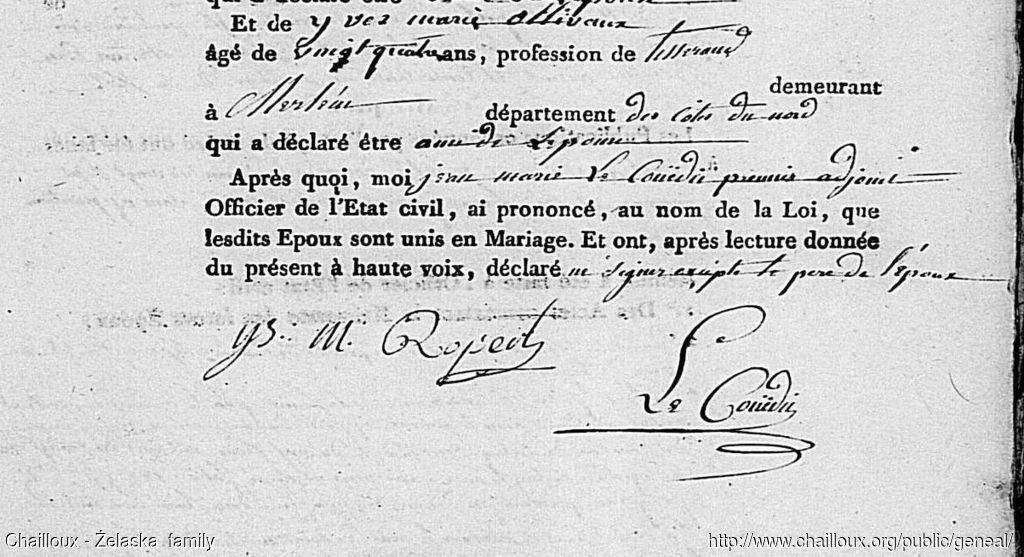 Et de yves marie ollivaux
âgé de vingt quatre ans, profession de tisserand
demeurant
à Merléac département des côtes du nord
qui a déclaré être ami de L'epoux
Après quoi, moi jean marie Le Couëdic premier adjoint
Officier de l'Etat civil, ai prononcé, au nom de la Loi, que
lesdits Epoux sont unis en Mariage. Et ont, après lecture donnée
du présent à haute voix, déclaré ne signer excepté le pere de l'époux
ys. M. Roperth
Le Couëdic
Chailloux - Żelaska family
http://www.chailloux.org/public/geneal/